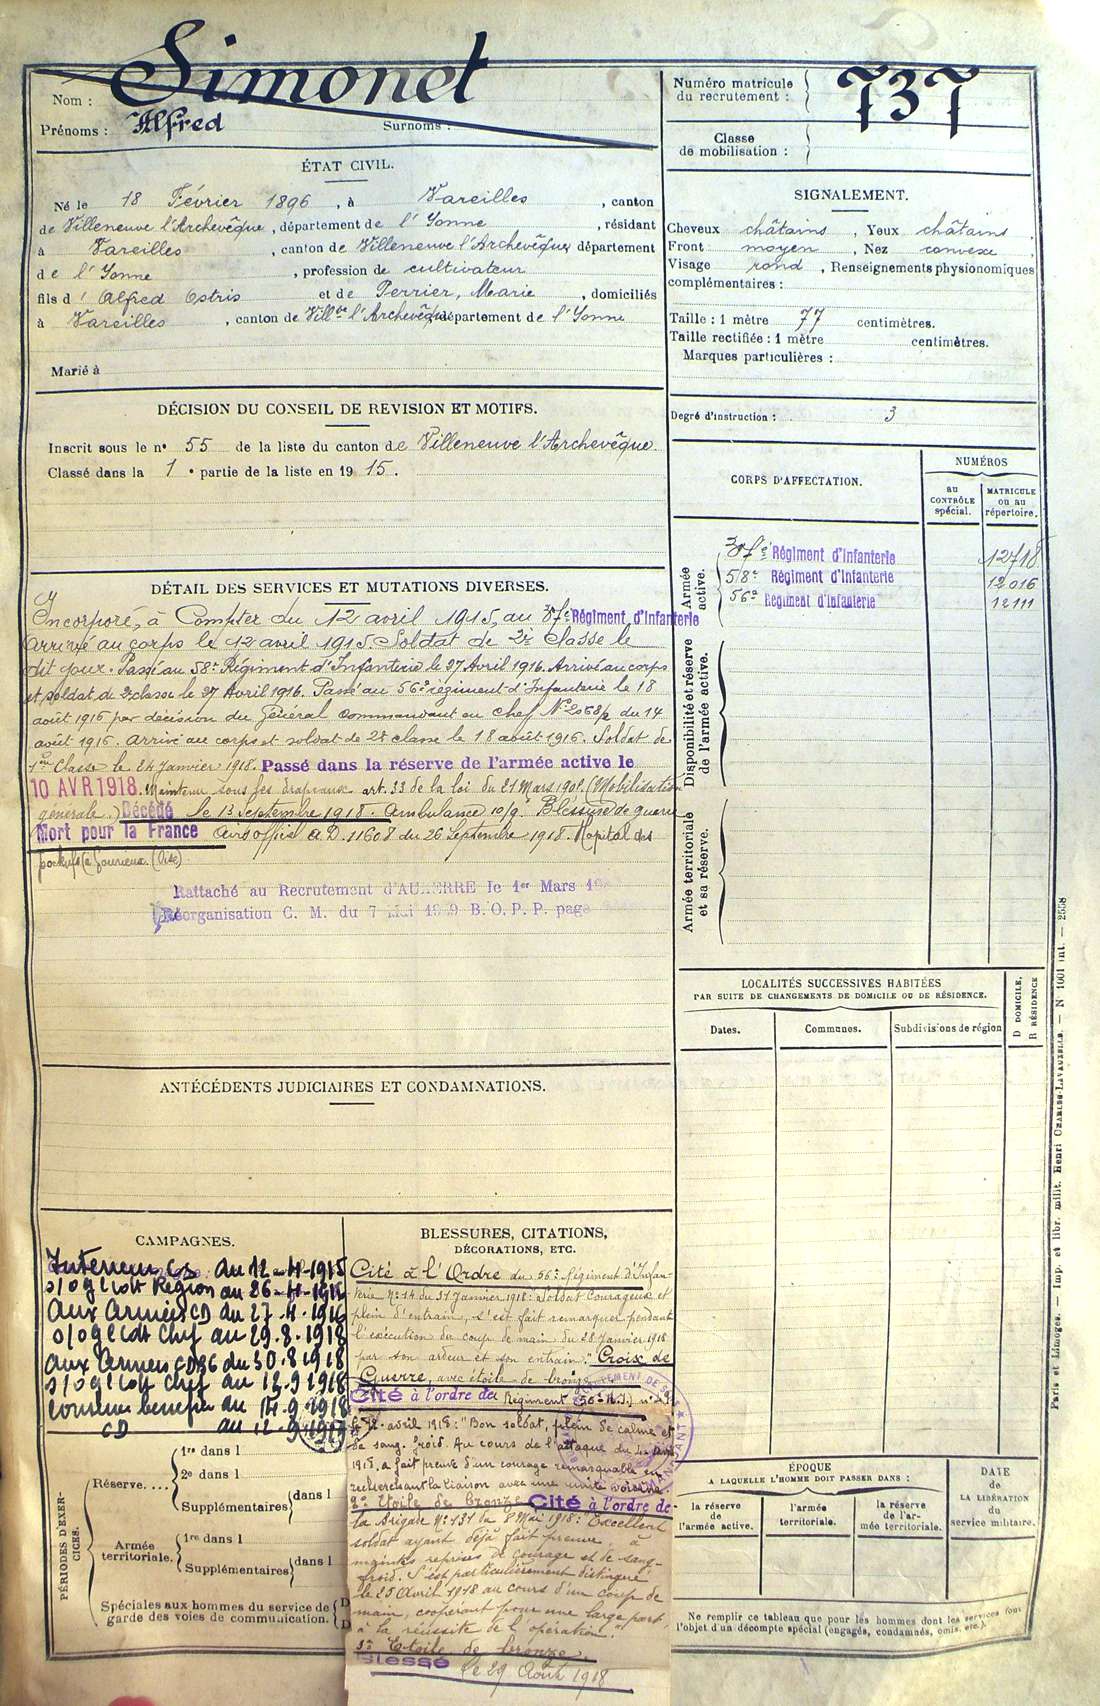 Nom : Simonet
Prénoms : Alfred Surnoms :
Numéro matricule
du recrutement : 737
Classe
de mobilisation :
ÉTAT CIVIL.
Né le 18 Février 1896, à Vareilles, canton
de Villeneuve l'Archevêque, département de l'Yonne, résidant
à Vareilles, canton de Villeneuve l'Archevêque département
de l'Yonne, profession de cultivateur
fils d'Alfred Ostris et de Perrier, Marie, domiciliés
à Vareilles, canton de Vill.ve l'Archevêque département de l'Yonne
Marié à
SIGNALEMENT.
Cheveux châtains, Yeux châtains
Front moyen, Nez convexe
Visage rond, Renseignements physionomiques
complémentaires :
Taille : 1 mètre 77 centimètres.
Taille rectifiée : 1 mètre centimètres.
Marques particulières :
Degré d'instruction : 3
DÉCISION DU CONSEIL DE REVISION ET MOTIFS.
Inscrit sous le n° 55 de la liste du canton de Villeneuve l'Archevêque.
Classé dans la 1e partie de la liste en 1915.
CORPS D'AFFECTATION.
NUMÉROS
AU CONTRÔLE spécial.
MATRICULE ou au répertoire.
Armée active.
37e Régiment d'Infanterie 12718
58e Régiment d'Infanterie 12016
56e Régiment d'Infanterie 12111
Disponibilité et réserve de l'armée active.
Armée territoriale et sa réserve.
DÉTAIL DES SERVICES ET MUTATIONS DIVERSES.
Incorporé, à Compter du 12 avril 1915, au 37e Régiment d'Infanterie
Arrivé au corps le 12 avril 1915. Soldat de 2e classe le
dit jour. Passé au 58e Régiment d'Infanterie le 27 Avril 1916. Arrivé au corps
et soldat de 2e classe le 27 Avril 1916. Passé au 56e régiment d'Infanterie le 18
août 1916 par décision du Général Commandant en chef du 14
août 1916. Arrivé au corps et soldat de 2e classe le 18 août 1916. Soldat de
1ère Classe le 24 Janvier 1918. Passé dans la réserve de l'armée active le
10 AVR 1918. Maintenu sous les drapeaux art. 33 de la loi du 21 Mars 1905. (Mobilisation
générale.) Décédé le 13 Septembre 1918. Ambulance 10/9. Blessures de guerre
Mort pour la France Avis officiel A D. 11608 du 26 Septembre 1918. Hopital des
(Oise)
Rattaché au Recrutement d'AUXERRE le 1er Mars
Réorganisation C. M. du 7 Mai B. O. P. P. page
LOCALITÉS SUCCESSIVES HABITÉES
PAR SUITE DE CHANGEMENTS DE DOMICILE OU DE RÉSIDENCE.
Dates. Communes. Subdivisions de région D DOMICILE, R RÉSIDENCE
ANTÉCÉDENTS JUDICIAIRES ET CONDAMNATIONS.
CAMPAGNES.
Intérieur CS du 12-4-1915
au 26-4-1916
Aux Armées CD du 27-4-1916
au 29.8.1918
Aux Armées CD du 30.8.1918
au 12.9.1918
du 14.9.1918
CD au
BLESSURES, CITATIONS,
DÉCORATIONS, ETC.
Cité à l'Ordre du 56e Régiment d'Infan-
terie N° 14 du 31 Janvier 1918: Soldat Courageux et
plein d'entrain, s'est fait remarquer pendant
l'exécution du coup de main du 28 Janvier 1918
par son ardeur et son entrain." Croix de
Guerre, avec étoile de bronze.
Cité à l'ordre du Régiment (56e R.I.) n°
avril 1918: "Bon soldat, plein de calme et
de sang-froid. Au cours de l'attaque du
1918, a fait preuve d'un courage remarquable en
recherchant la liaison avec une unité voisine
2e Etoile de bronze Cité à l'ordre de
la Brigade N° 131 du 8 Mai 1918: Excellent
soldat ayant déjà fait preuve à
maintes reprises de courage et de sang-
froid. S'est particulièrement distingué
le 25 Avril 1918 au cours d'un coup de
main, coopérant pour une large part
à la réussite de l'opération."
3e Etoile de bronze.
Blessé le 29 Août 1918
PÉRIODES D'EXERCICES.
Réserve.... 1re dans l
2e dans l
Supplémentaires dans l
Armée territoriale. 1re dans l
Supplémentaires dans l
Spéciales aux hommes du service de
garde des voies de communication.
ÉPOQUE
A LAQUELLE L'HOMME DOIT PASSER DANS :
la réserve de l'armée active.
l'armée territoriale.
la réserve de l'armée territoriale.
DATE DE LA LIBÉRATION du service militaire.
Ne remplir ce tableau que pour les hommes dont les services font
l'objet d'un décompte spécial (engagés, condamnés, omis, etc.).
Paris et Limoges. — Imp. et libr. milit. Henri CHARLES-LAVAUZELLE. — N° 1001 int. — 2558